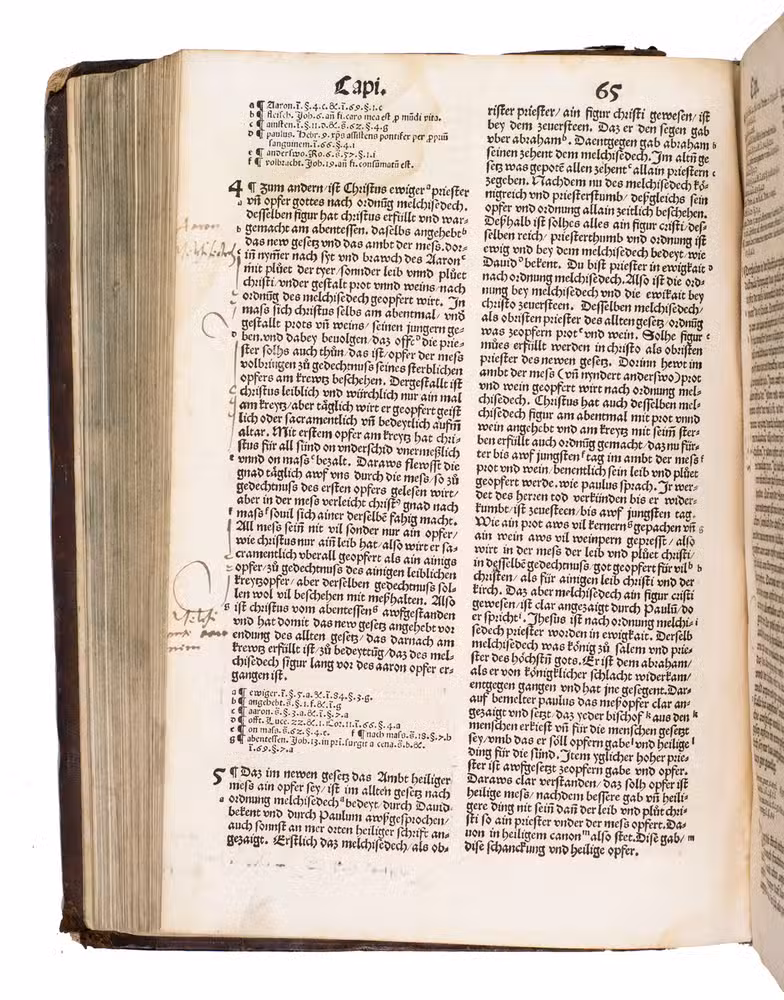 Capi. 65
a ¶ Aaron.ī.§.4.c.&.ī.69.§.1.c
b ¶ fleisch. Joh.6.an fi.caro mea est p mūdi vita.
c ¶ ainsten.ī.§.11.d.&.s̄.62.§.4.g
d ¶ paulus. Hebr.9.xp̄s assistens pontifex per ppriū
sanguinem.ī.66.§.4.i
e ¶ anderswo.Ro.6.s̄.57.§.1.i
f ¶ volbracht. Joh.19.an fi.consumatū est.
4 ¶ Zum andern/ist Christus ewiger a priester
vn̄ opfer gottes nach ordnūg melchisedech.
desselben figur hat christus erfüllt vnd war-
gemacht am abentessen. daselbs angehebt b
das new gesetz vnd das ambt der mess.dor-
in nym̄er nach syt vnd brawch des Aaron c
mit plůet der tyer/sonnder leib vnnd plůet
christi/vnder gestalt prot vnnd weins/nach
ordnūg des melchisedech geopfert wirt. In
mass sich christus selbs am abentmal/vnd
gestallt prots vn̄ weins/seinen jungern ge-
ben.vnd dabey beuolgen/daz offt d die prie-
ster solhs auch thůn/das ist/opfer der mess
volbringen zů gedechtnuss seines sterblichen
opfers am krewtz beschehen. Dergestallt ist
christus leiblich vnd würchlich nur ain mal
am kreytz/aber täglich wirt er geopfert geist
lich oder sacramentlich vn̄ bedeytlich aufm̄
altar. Mit erstem opfer am kreytz hat chri-
stus für all sünd on vnderschid vnermeßlich
vnnd on mass e bezalt. Daraws flewsst die
gnad täglich awf vns durch die mess/so zů
gedechtnuss des ersten opfers gelesen wirt/
aber in der mess verleicht christ9 gnad nach
mass f souil sich ainer derselbē fähig macht.
All mess sein̄ nit vil sonder nur ain opfer/
wie christus nur ain̄ leib hat/also wirt er sa-
cramentlich vberall geopfert als ain ainigs
opfer/zů gedechtnuss des ainigen leiblichen
kreytzopfer/aber derselben gedechtnuss sol-
len wol vil beschehen mit meßhalten. Also
ist christus vom abentessen g awfgestanden
vnd hat domit das new gesetz angehebt vor
endung des allten gesetz/das darnach am
krewtz erfüllt ist/zů bedeyttūg/daz des mel-
chisedech figur lang vor des aaron opfer er-
gangen ist.
a ¶ ewiger.ī.§.5.a.&.ī.84.§.3.g.
b ¶ angehebt.s̄.§.1.f.&.ī.g
c ¶ aaron.s̄.§.3.a.&.ī.§.7.a
d ¶ offt. Luce.22.&.1.Cor.11.ī.66.§.4.a
e ¶ on mass.s̄.62.§.4.e. f ¶ nach mass.s̄.18.§.7.b
g ¶ abentessen. Joh.13.in pri.surgit a cena.s̄.b.&.
ī.69.§.7.a
5 ¶ Daz im newen gesetz das Ambt heiliger
mess ain opfer sey/ist im allten gesetz nach
ordnung melchisedech a bedeyt/durch Dauid
bekent vnd durch Paulum awßgesprochen/
auch sonnst an mer orten heiliger schrift an-
gezaigt. Erstlich daz melchisedech/als ob-
rister priester/ain figur christi gewesen/ist
bey dem zeuersteen. Daz er den segen gab
vber abraham b. Daentgegen gab abraham
seinen zehent dem melchisedech.Im altn̄ ge
setz was gepotē allen zehent c allain priestern
zegeben. Nachdem nu des melchisedech kö-
nigreich vnd priesterstumb/deßgleichs sein
opfer vnd ordnung allain zeitlich beschehen.
Deßhalb ist solhes alles ain figur cristi/des-
selben reich/priesterthumb vnd ordnung ist
ewig vnd bey dem melchisedech bedeyt/wie
Dauid d bekent. Du bist priester in ewigkait
nach ordnung melchisedech.Also ist die ord-
nung bey melchisedech vnd die ewikait bey
christo zeuersteen. Desselben melchisedech/
als obristen priester des allten gesetz/ordnūg
was zeopfern prot e vnd wein. Solhe figur
můes erfüllt werden in christo als obristen
priester des newen gesetz. Dorinn hewt im
ambt der mess (vn̄ nyndert anderswo)prot
vnd wein geopfert wirt nach ordnung mel-
chisedech. Christus hat auch desselben mel-
chisedech figur am abentmal mit prot vnnd
wein angehebt vnd am kreytz mit sein̄ ster-
ben erfüllt auch ordnūg gemacht/daz nu für
ter bis awf jungsten f tag im ambt der mess
prot vnd wein/benentlich sein leib vnd plůet
geopfert werde.wie paulus sprach. Ir wer-
det des herren tod verkünden bis er wider-
kumbt/ist zeuersteen/bis awf jungsten tag.
Wie ain prot aws vil kernern g gepachen vn̄
ain wein aws vil weinpern gepresst/also
wirt in der mess der leib vnd plůet christi/
in desselbē gedechtnuss/got geopfert für vil h
christen/als für ainigen leib christi vnd der
kirch. Daz aber melchisedech ain figur cristi
gewesen/ist clar angezaigt durch Paulū/do
er spricht i. Jhesus ist nach ordnung melchi-
sedech priester worden in ewigkait. Derselb
melchisedech was könig zů salem vnd prie-
ster des höchstn̄ gots.Er ist dem abraham/
als er von königklicher schlacht widerkam/
entgegen gangen vnd hat jne gesegent.Dar-
auf bemelter paulus das meßopfer clar an-
gezaigt vnd setzt/daz yeder bischof k aus den
menschen erkiest vn̄ für die menschen gesetzt
sey/vnd das er söll opfern gabe l vnd heilige
ding für die sünd. Item yglicher hoher prie-
ster ist awfgesetzt zeopfern gabe vnd opfer.
Daraws clar verstanden/daz solh opfer ist
heilige mess/nachdem bessere gab vn̄ heili-
gere ding nit sein̄ dan̄ der leib vnd plůt chri-
sti so ain priester vnder der mess opfert.Da-
uon in heiligem canon m also stet.Dise gab/
dise schanckung vnd heilige opfer.